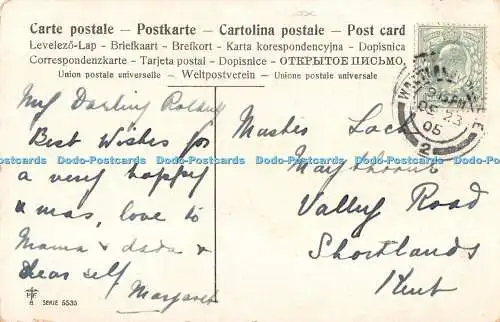 Carte postale – Postkarte – Cartolina postale – Post card
Levelező-Lap – Briefkaart – Brefkort – Karta korespondencyjna – Dopisnica
Correspondenzkarte – Tarjeta postal – Dopisnice – ОТКРЫТОЕ ПИСЬМО.
Union postale universelle – Weltpostverein – Unione postale universale
My Darling Roland
Best Wishes for
a very happy
Xmas, love to
Mama & dada &
dear self
Margaret
SERIE 5535
Master Loch
Maythorne
Valley Road
Shortlands
Kent
DE 23
05
2
Dodo-Postcards Dodo-Postcards Dodo-Postcards Dodo-Postcards Dodo-Postcards Dodo-Postcards